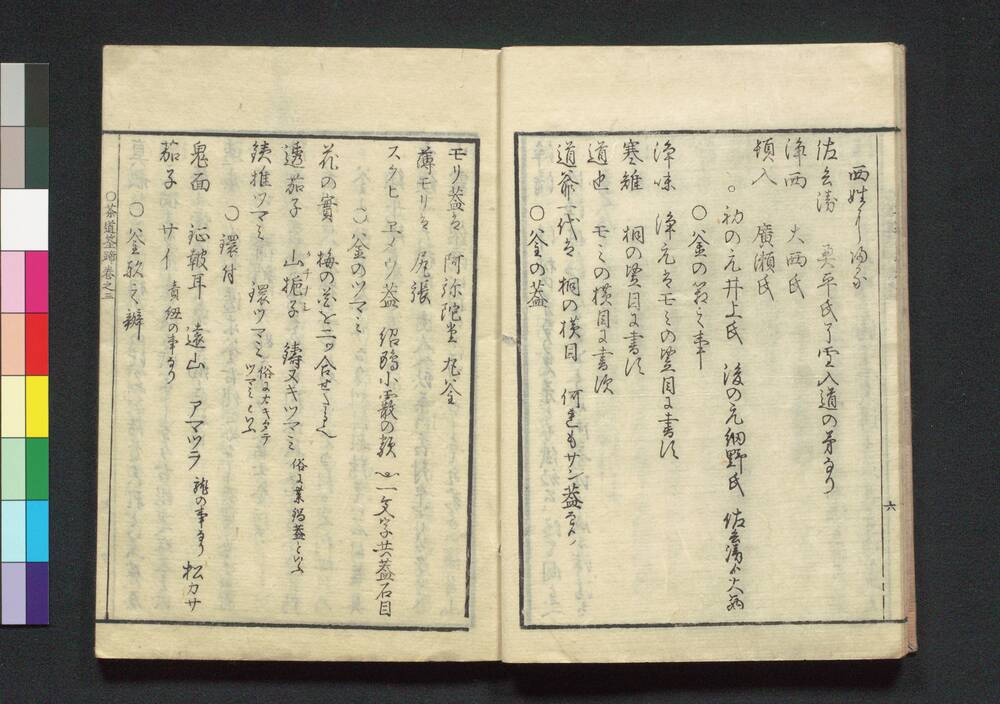 西姓より海分
佐兵衛 與平氏了雪入道の弟なり
浄西 大西氏
頓入 廣瀬氏
○初の元井上氏 後の元細野氏 佐兵衛
○釜の箱之事
浄味 浄元ハモミの竪目に書す
寒雉 桐の竪目に書す
道也 モミの横目に書す
道爺一代ハ桐の横目 何れもサン蓋なり
○釜の蓋
六
モリ蓋ハ 阿弥陀堂 丸釜
薄モリハ 尻張
スクヒ ヱノウ蓋 紹鴎小霰の類 一文字共蓋石目
○釜のツマミ
花の實 梅の花を二ツ合せたる也
透茄子 山梔子 鋳ヌキツマミ 俗に菓鍋蓋といふ
鉄推ツマミ 環ツマミ 俗に
ツマミといふ
○環付
鬼面 征皷耳 遠山 アマツラ 龍の事なり 松カサ
茄子 サイ 責紐の事なり
○釜
○茶道筌蹄巻之三